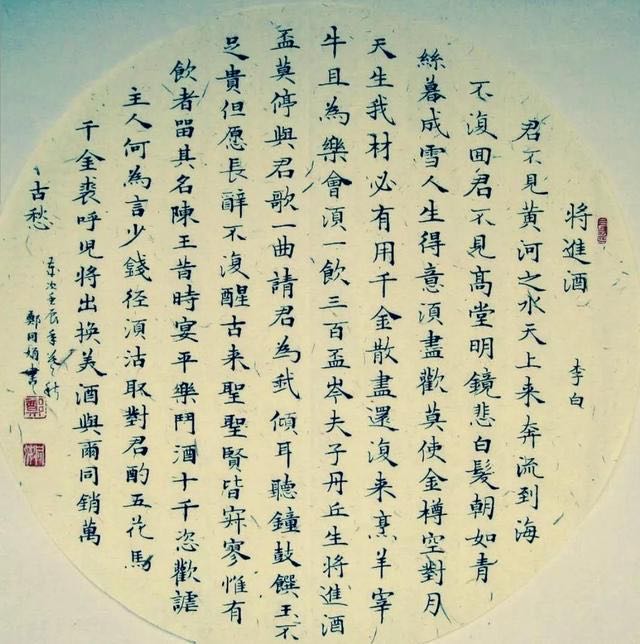 將進酒
李白
君不見黃河之水天上来奔流到海
不復回君不見高堂明鏡悲白髮朝如青
絲暮成雪人生得意須盡歡莫使金樽空對月
天生我材必有用千金散盡還復来烹羊宰
牛且為樂會須一飲三百盃岑夫子丹丘生將進酒
盃莫停與君歌一曲請君為我傾耳聽鐘鼓饌玉不
足貴但愿長辭不復醒古来聖聖賢皆寂寥惟有
飲者留其名陳王昔時宴平樂鬥酒十千恣歡謔
主人何為言少錢径須沽取對君酌五花馬
千金裘呼児將出換美酒與爾同銷萬
古愁
壬辰年
鄭同書